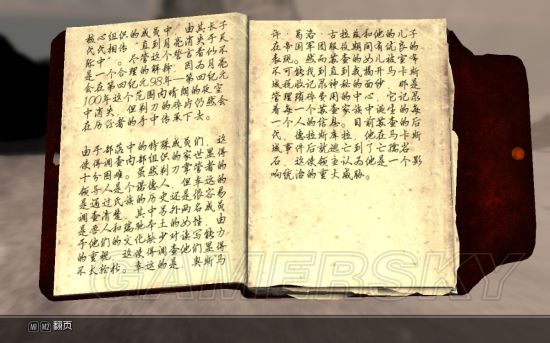 核心组织的成员中，由其长子
代代相传"直到月亮消失于天
际中"。尽管这个誓言看似不
是一个合理的解释，因为月亮
会在第四纪元98年—第四纪元
100年这个范围内晴朗的夜空
中消失，但利刃的碎片仍然会
在历任者的手中传承下去。
由于部落中的特殊成员们，这
使得调查内部组织的家世显得
十分困难。虽然利刃掌管者的
领导人是个诺德人，但幸运的
是通过民族的历史还是很容易
调查清楚。其中另外两名成员
是兽人和瑞驰本土的女性，由
于他们的文化缺少对读写能力
的重视，这使得调查他们显得
不太轻松。幸运的是，奥斯马
许·葛洛·古拉兹和他的儿子
在帝国军团服役期间有优良的
表现。然而茱查的女儿被宣布
不可能找到直到我揭开马卡斯
城税收记录神秘的面纱，那是
管理琐碎费用的中心，它记录
着每一个茱查家族中诞生的每
一个人的信息。目前茱查的后
代，德拉斯库拉，他在马卡斯
城事件后就逃亡到了亡德容
岩，这使领主认为他是一个影
响统治的重大威胁。
GAMERSKY
M1 M2 翻页